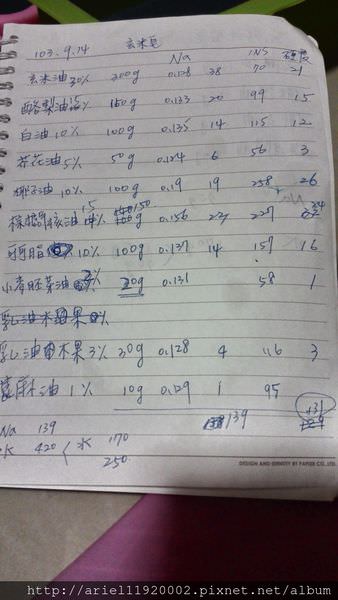 103.9.14 玄米皂
Na INS 硬度
玄米油 30% 300g 0.128 38 70 21
酪梨油 15% 150g 0.133 20 99 15
白油 10% 100g 0.135 14 115 12
芥花油 5% 50g 0.124 6 56 3
椰子油 10% 100g 0.19 19 258 26
棕櫚核油 15% 150 0.156 227 24
牛脂 10% 100g 0.137 14 157 16
小麥胚芽油 2% 20g 0.131 58 1
乳油木果
乳油木果 3% 30g 0.128 4 116 3
蓖麻油 1% 10g 0.129 1 95
139 131
Na 139
水 420 水 170
250
DESIGN AND IDENTITY BY PAPER CO., LTD.
http://ariel11920002.pixnet.net/album